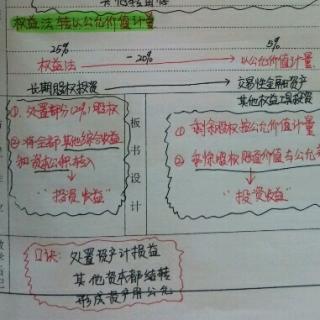 权益法转以公允价值计量
25% -20% 5%
权益法 以公允价值计量
长期股权投资 交易性金融资产
其他权益工具投资
①处置部分(20%)股权
②将全部其他综合收益
和资本公积转入
"投资收益"
板书设计
①剩余股权按公允价值计量
②剩余股权账面价值与公允
"投资收益"
口诀:处置资产计损益
其他资本都结转
形成资产用公允